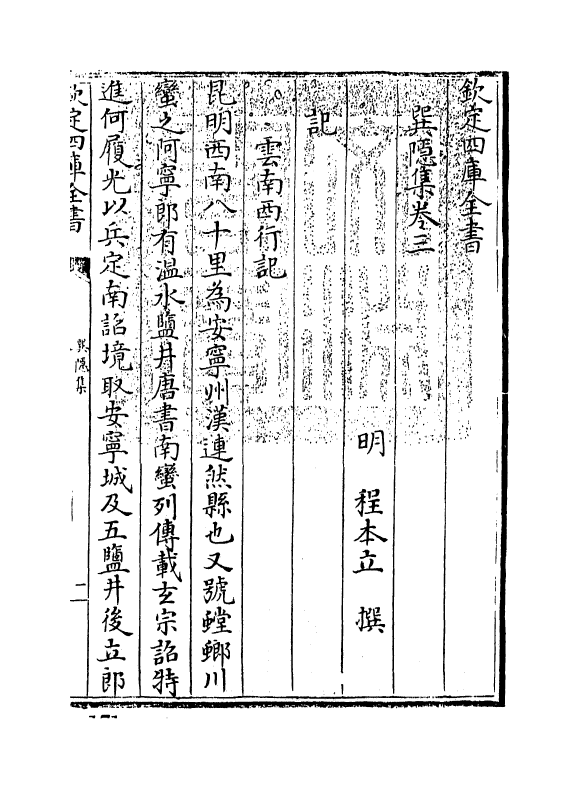 欽定四庫全書
巽隱集卷三
明　程本立　撰
記
雲南西行記
昆明西南八十里為安寧州漢連然縣也又號螳螂川
蠻之阿寧郎有溫水鹽井唐書南蠻列傳載玄宗詔特
進何履光以兵定南詔境取安寧城及五鹽井後立郎
欽定四庫全書
巽隱集